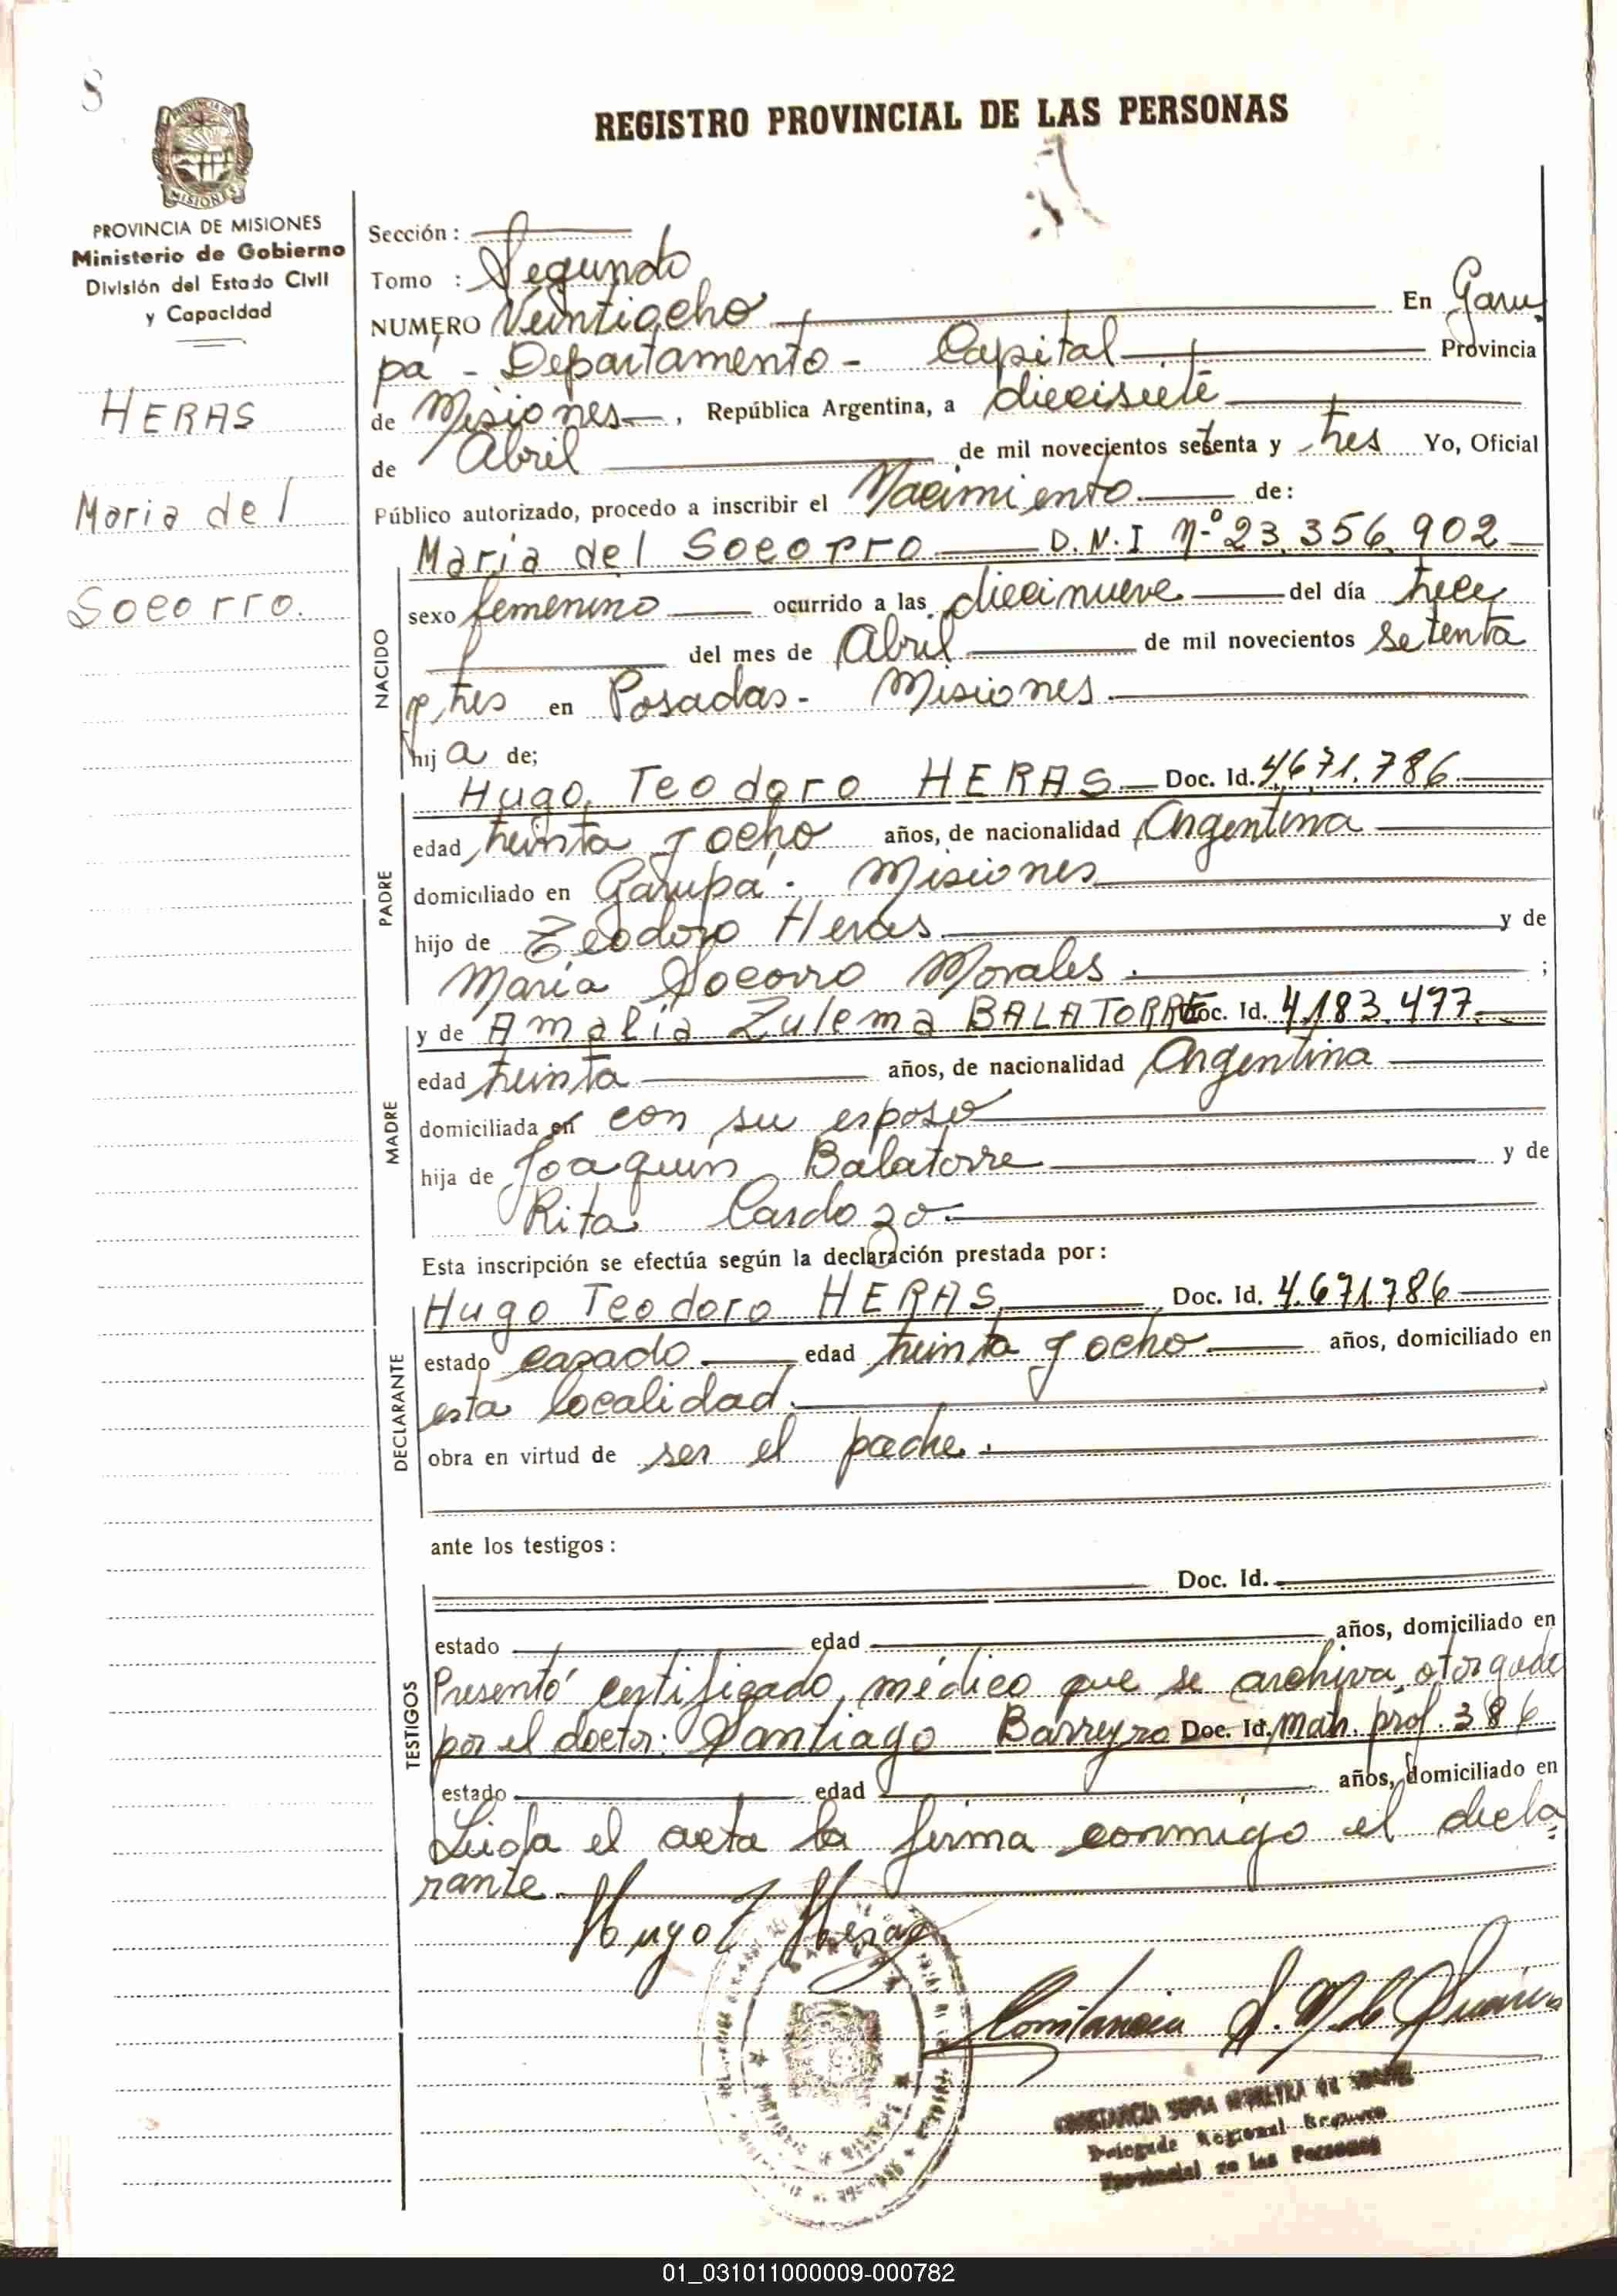 8
REGISTRO PROVINCIAL DE LAS PERSONAS
MISIONES
PROVINCIA DE MISIONES
Ministerio de Gobierno
División del Estado Civil
y Capacidad
HERAS
Maria del
Socorro.
Sección :
Tomo : Segundo
NUMERO Veintiocho En Garu
pá - Departamento - Capital Provincia
de Misiones , República Argentina, a diecisiete
de Abril de mil novecientos setenta y tres Yo, Oficial
Público autorizado, procedo a inscribir el Nacimiento de:
NACIDO
Maria del Socorro D.N.I Nº 23.356.902
sexo femenino ocurrido a las diecinueve del día trece
del mes de Abril de mil novecientos setenta
y tres en Posadas - Misiones
hij a de;
PADRE
Hugo Teodoro HERAS Doc. Id. 4.671.786
edad treinta y ocho años, de nacionalidad Argentina
domiciliado en Garupá - Misiones
hijo de Teodoro Heras y de
María Socorro Morales. ;
MADRE
y de Amalia Zulema BALATORRE Doc. Id. 4.183.477
edad treinta años, de nacionalidad Argentina
domiciliada en con su esposo
hija de Joaquín Balatorre y de
Rita Cardozo.
Esta inscripción se efectúa según la declaración prestada por:
DECLARANTE
Hugo Teodoro HERAS Doc. Id. 4.671.786
estado casado edad treinta y ocho años, domiciliado en
esta localidad.
obra en virtud de ser el padre.
ante los testigos :
TESTIGOS
Doc. Id.
estado edad años, domiciliado en
Presentó certificado médico que se archiva, otorgado
por el doctor: Santiago Barreyro Doc. Id. Mat. prof. 386
estado edad años, domiciliado en
Leída el acta la firma conmigo el decla
rante.
Hugo T Heras
Constancia S. M. de
CONSTANCIA MOREYRA DE
Delegada Regional Registro
Provincial de las Personas
01_031011000009-000782